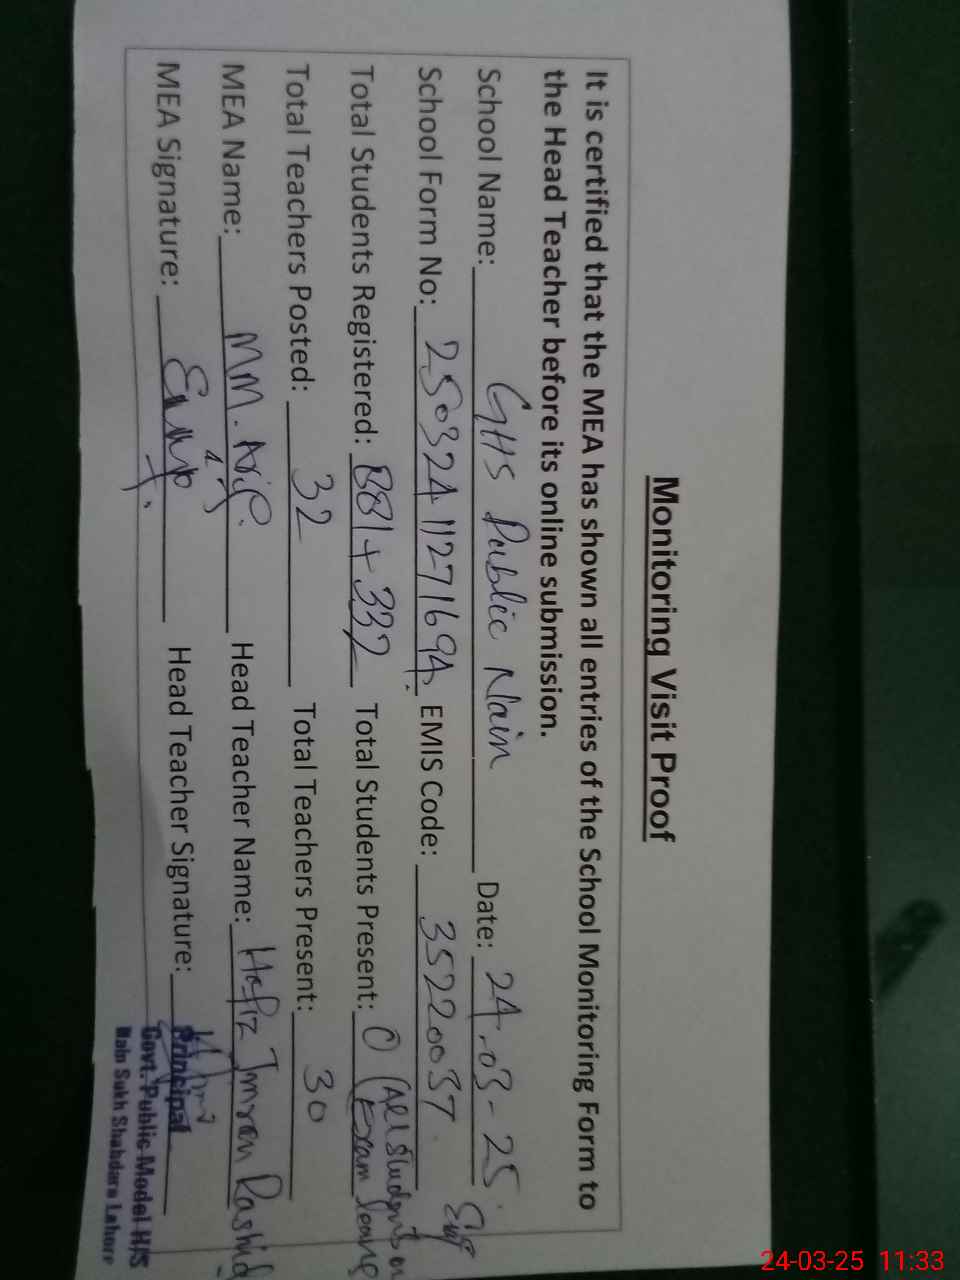 Monitoring Visit Proof
It is certified that the MEA has shown all entries of the School Monitoring Form to
the Head Teacher before its online submission.
School Name: GHS Public Nain Date: 24.03-25
School Form No: 25032411271694. EMIS Code: 35220037
Total Students Registered: 881+332 Total Students Present: 0 (All Students on
Exam leave
Total Teachers Posted: 32 Total Teachers Present: 30
MEA Name: MM. Arif Head Teacher Name: Hafiz Imran Rashid
MEA Signature: Head Teacher Signature:
Principal
Govt. Public Model H/S
Nain Sukh Shahdara Lahore
24-03-25 11:33